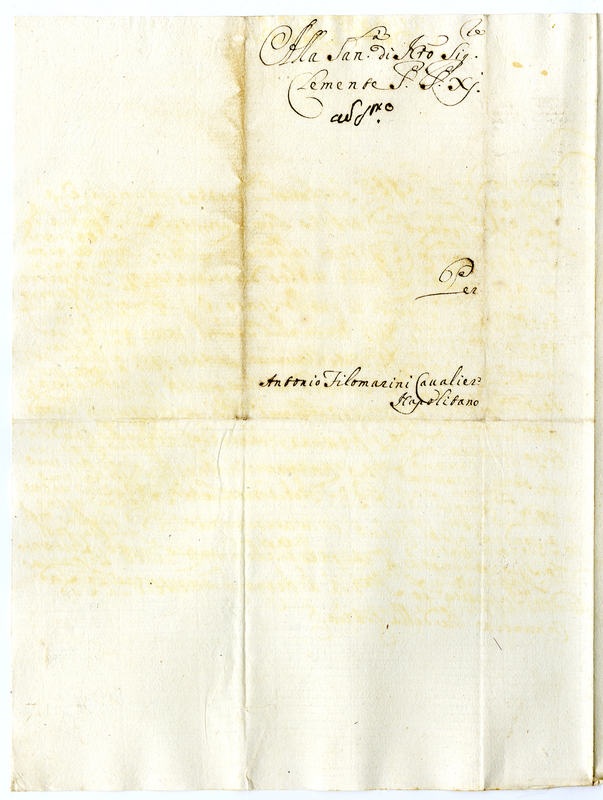 Alla San.tà di Nro Sig.re
Clemente P. P. XI.
Per
Antonio Filomarini Cavalier
Napolitano